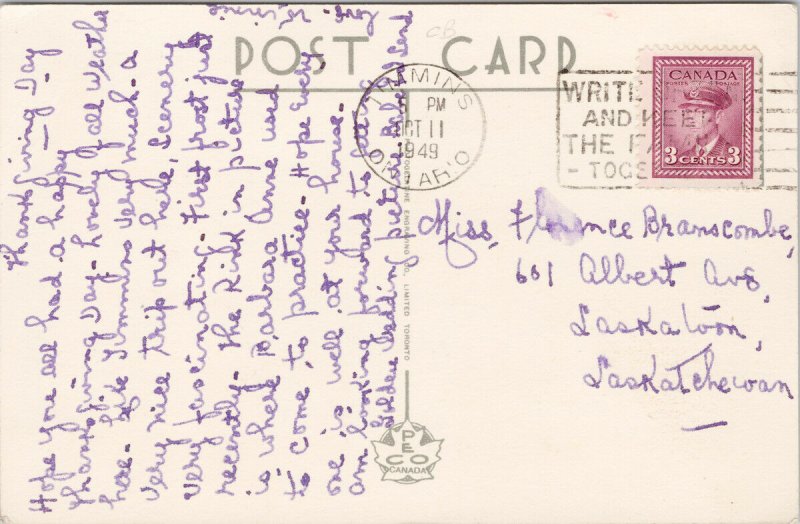 POST CARD
TIMMINS
PM
OCT 11
1949
ONTARIO
WRITE
AND KEEP
THE
TOGE
CANADA
POSTES POSTAGE
3 CENTS 3
Thanksgiving Day
Hope you all had a happy
Thanksgiving Day - Lovely fall weather
here - like Timmins very much - a
very nice trip out here, Scenery
very fascinating - First frost just
recently - the Rink in picture
is where Barbara Anne used
to come to practice - Hope every
one is well at your house -
am looking forward to
Golden Wedding picture
Miss, Florence Branscombe,
601 Albert Ave,
Saskatoon,
Saskatchewan
ENGRAVING CO. LIMITED TORONTO
PECO
CANADA